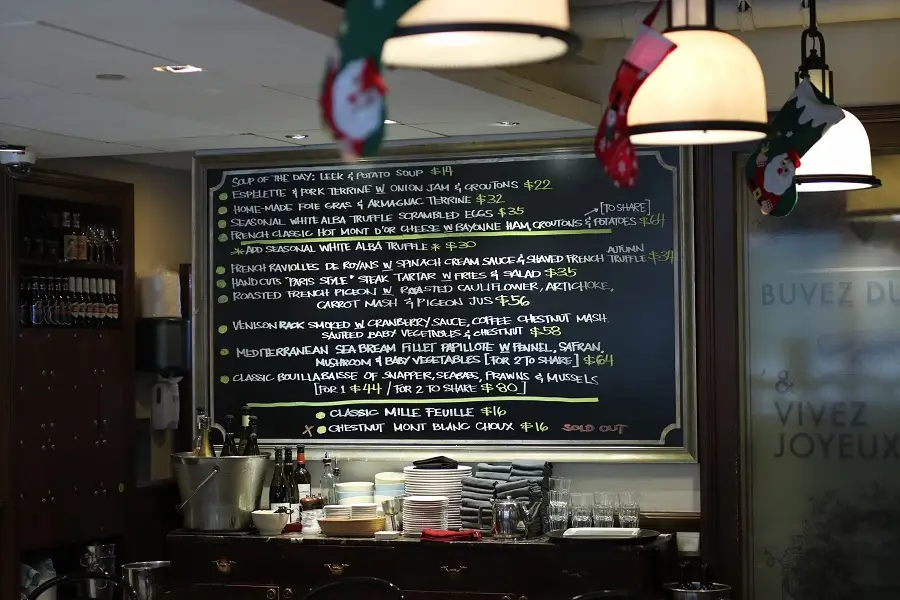 SOUP OF THE DAY: LEEK & POTATO SOUP $14
ESPELETTE & PORK TERRINE W ONION JAM & CROUTONS $22
HOME-MADE FOIE GRAS & ARMAGNAC TERRINE $32
SEASONAL WHITE ALBA TRUFFLE SCRAMBLED EGGS $35
[TO SHARE]
FRENCH CLASSIC HOT MONT D'OR CHEESE W BAYONNE HAM, CROUTONS & POTATOES $64
*ADD SEASONAL WHITE ALBA TRUFFLE* $30
AUTUMN
FRENCH RAVIOLLES DE ROYANS W SPINACH CREAM SAUCE & SHAVED FRENCH TRUFFLE
HAND CUTS "PARIS STYLE" STEAK TARTAR W FRIES & SALAD $35
ROASTED FRENCH PIGEON W ROASTED CAULIFLOWER, ARTICHOKE,
CARROT MASH & PIGEON JUS $56
VENISON RACK SMOKED W CRANBERRY SAUCE, COFFEE CHESTNUT MASH
SAUTEED BABY VEGETABLES & CHESTNUT $58
MEDITERRANEAN SEA BREAM FILLET PAPILLOTE W FENNEL, SAFRAN,
MUSHROOM & BABY VEGETABLES [FOR 2 TO SHARE] $64
CLASSIC BOUILLABAISSE OF SNAPPER, SEABASS, PRAWNS & MUSSELS
[FOR 1 $44 / FOR 2 TO SHARE $80]
CLASSIC MILLE FEUILLE $16
X CHESTNUT MONT BLANC CHOUX $16 SOLD OUT
BUVEZ DU
&
VIVEZ
JOYEUX